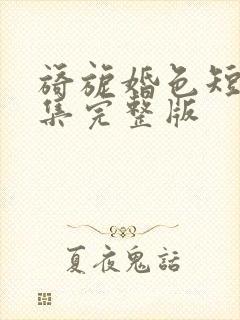 旖旎婚色短
集完整版
夏夜鬼話